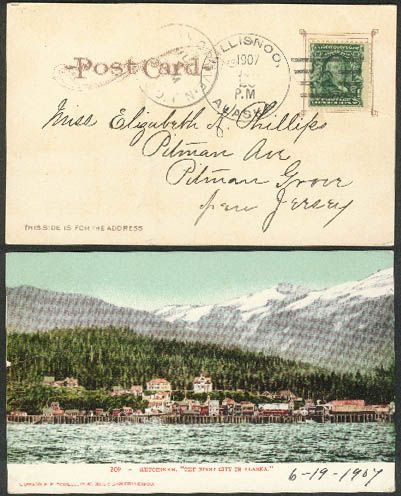 Post Card
KILLISNOO,
1907
P.M.
ALASKA
Miss Elizabeth H. Phillips
Pitman Ave
Pitman Grove
New Jersey
THIS SIDE IS FOR THE ADDRESS
209 - KETCHIKAN, "THE FIRST CITY IN ALASKA."
6-19-1907